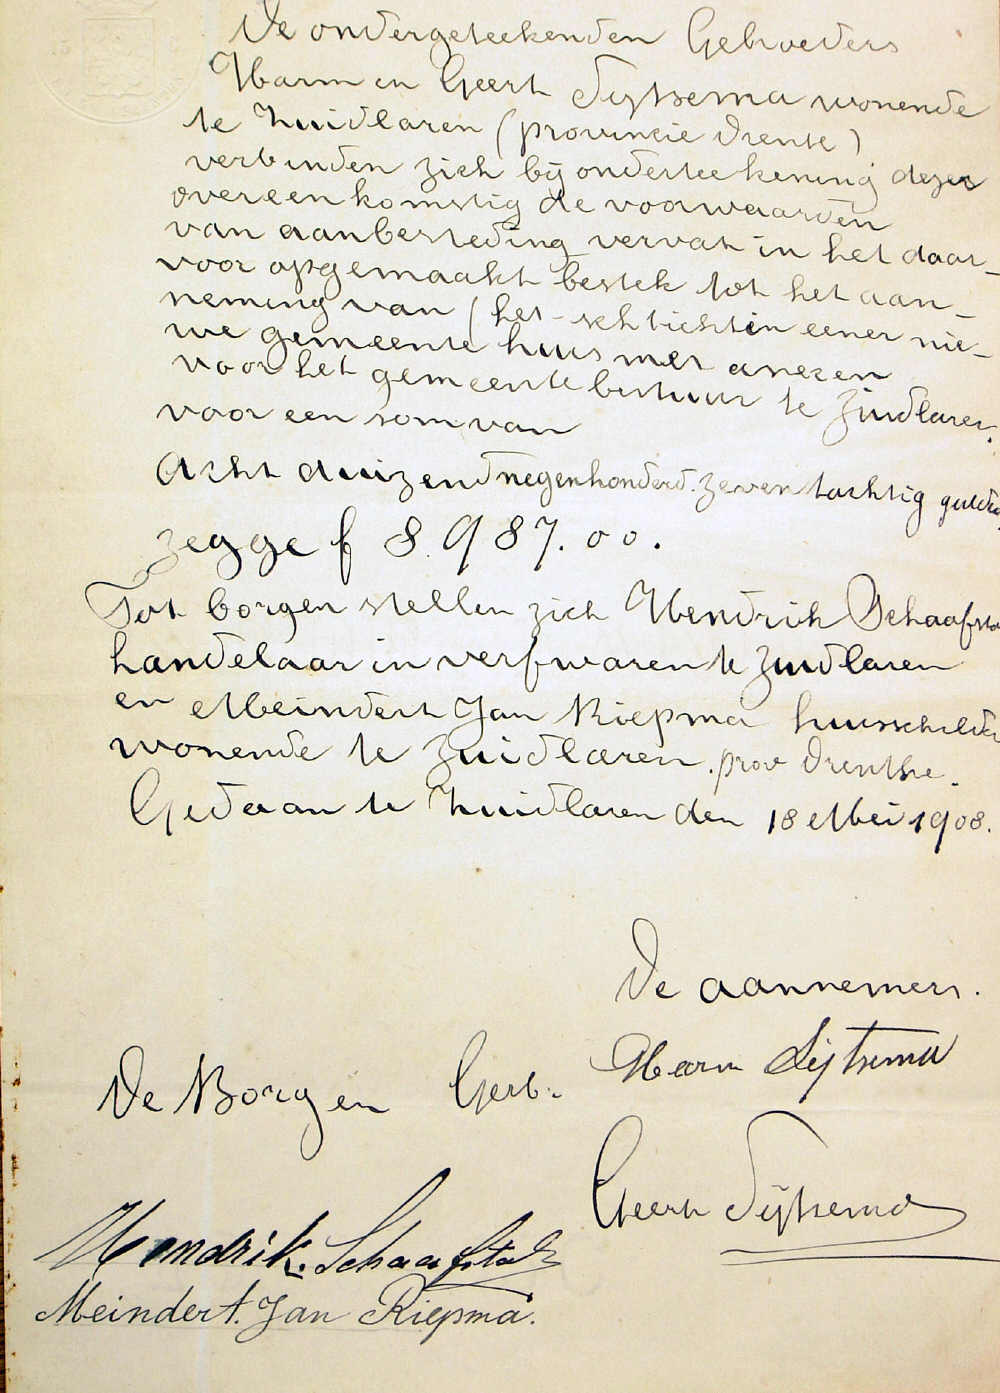 De ondergeteekenden Gebroeders
Harm en Geert Sijtsema wonende
te Zuidlaren (provincie Drente)
verbinden zich bij onderteekening dezes
overeenkomstig de voorwaarden
van aanbesteding vervat in het daar-
voor opgemaakt bestek tot het aan-
neming van het stichten eener nie-
we gemeente huis met anexen
voor het gemeente bestuur te Zuidlaren.
voor een som van
Acht duizend negenhonderd zeven tachtig gulden
zegge f 8987.00.
Tot borgen stellen zich Hendrik Schaafstal
handelaar in verfwaren te Zuidlaren
en Meindert Jan Riepma huisschilder
wonende te Zuidlaren. prov Drenthe.
Gedaan te Zuidlaren den 18 Mei 1908.
De aannemers.
De Borgen Gerb. Harm Sijtsema
Geert Sijtsema
Hendrik. Schaafstal
Meindert. Jan Riepma.